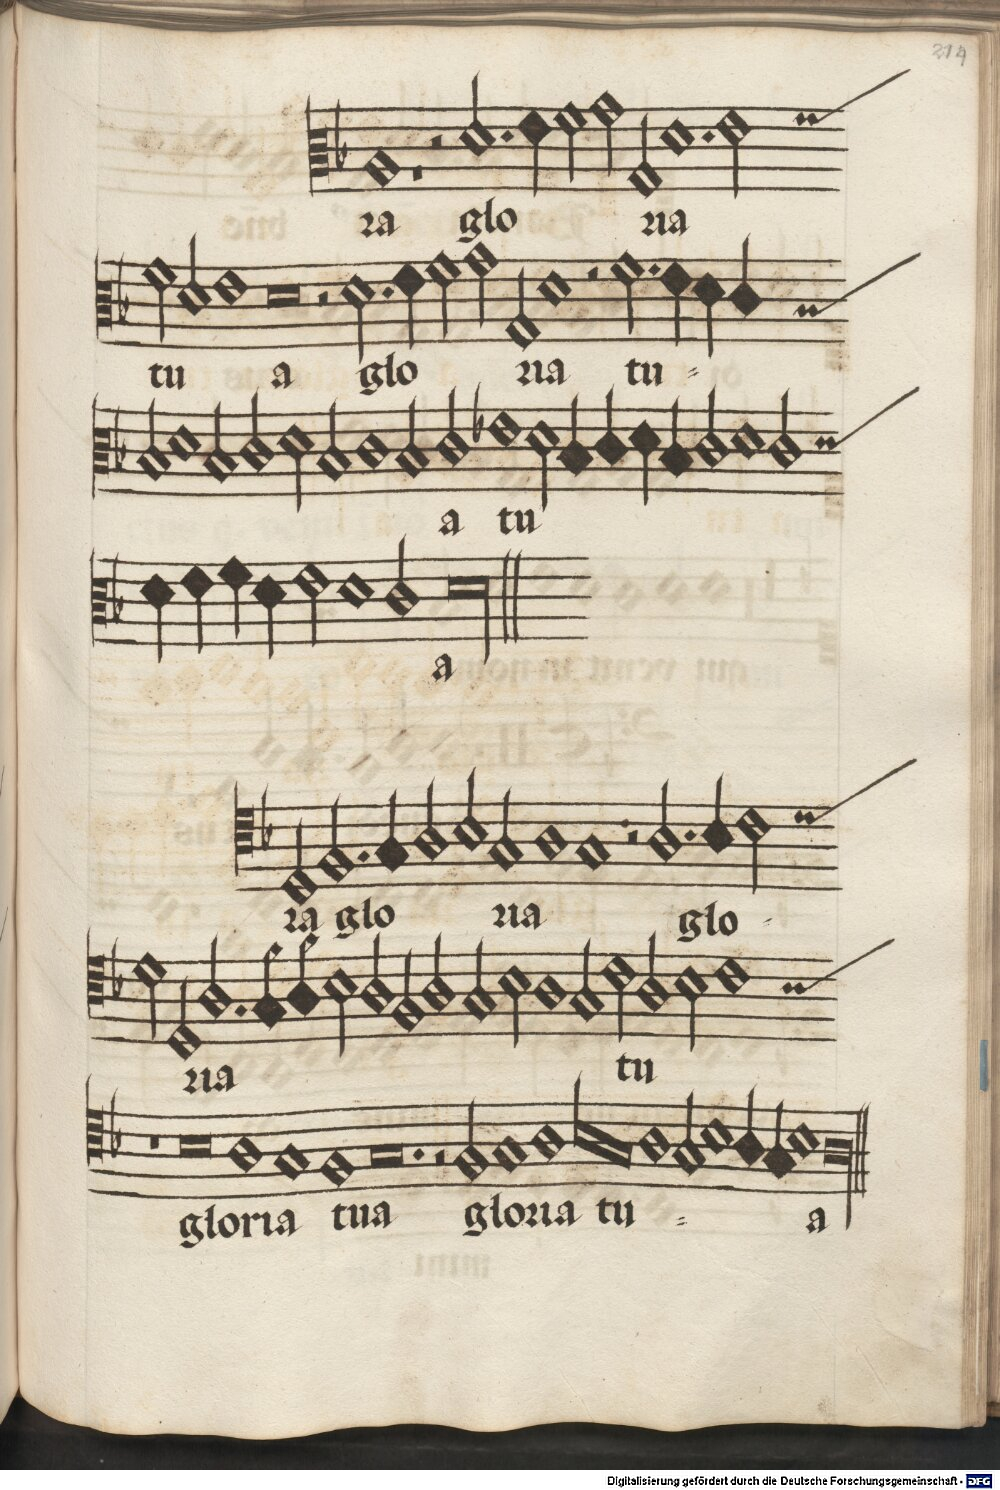 214
ra glo ria
tu a glo ria tu =
a tu
a
ra glo ria glo -
ria tu
gloria tua gloria tu = a
Digitalisierung gefördert durch die Deutsche Forschungsgemeinschaft - DFG